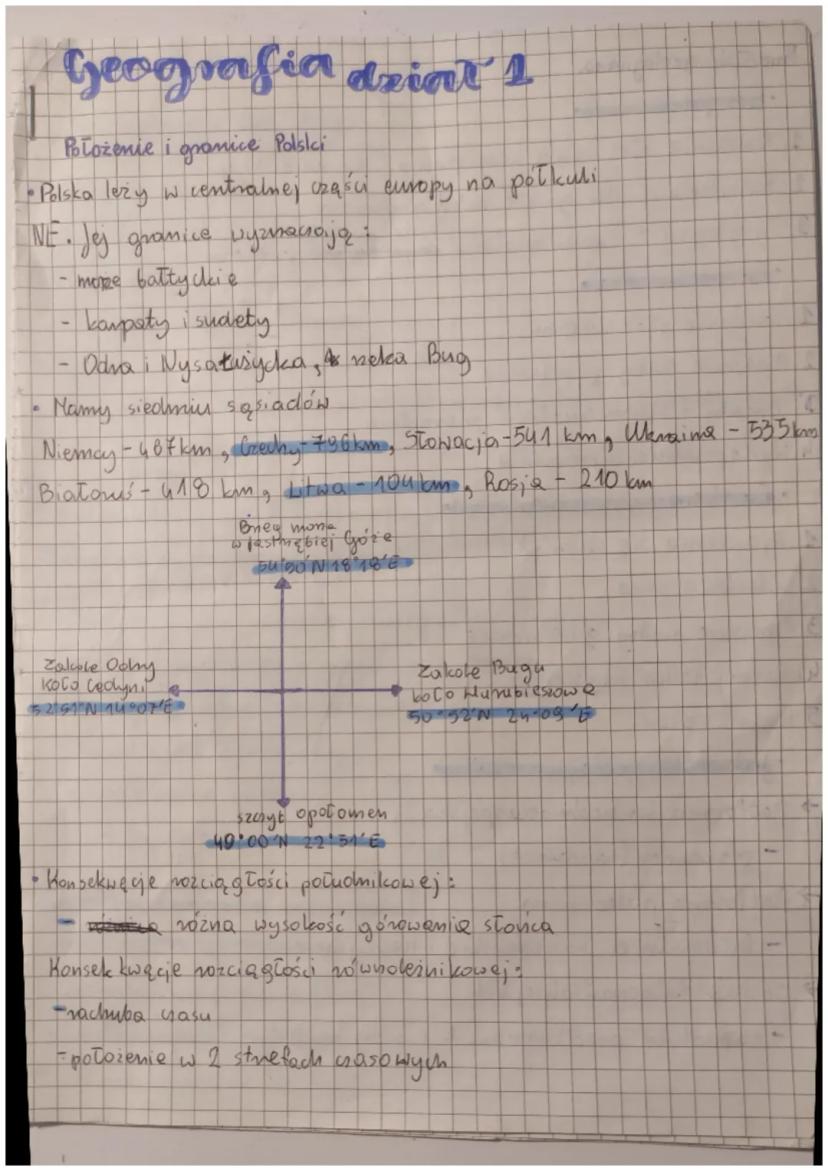 Geografia dział 1
Położenie i granice Polski
• Polska leży w centralnej części europy na półkuli
NE. Jej granice wyznaczają:
- morze bałtyckie
- karpaty i sudety
- Odra i Nysa Łużycka, rzeka Bug
• Mamy siedmiu sąsiadów
Niemcy - 467km, Czechy - 796km, Słowacja - 541 km, Ukraina - 535km
Białoruś - 418 km, Litwa - 104 km, Rosja - 210 km
Brzeg morza
w jastrzębiej Górze
54°50'N 18°18'E
Zakole Odry
koło Cedyni
52°51'N 14°07'E
Zakole Bugu
koło Hurubieszowa
50°52'N 24°09'E
szczyt opołomen
49°00'N 22°51'E
• Konsekwęcje rozciągłości południkowej:
- różna wysokość górowania słońca
Konsek kwęcje rozciągłości równoleżnikowej:
- rachuba czasu
- położenie w 2 strefach czasowych